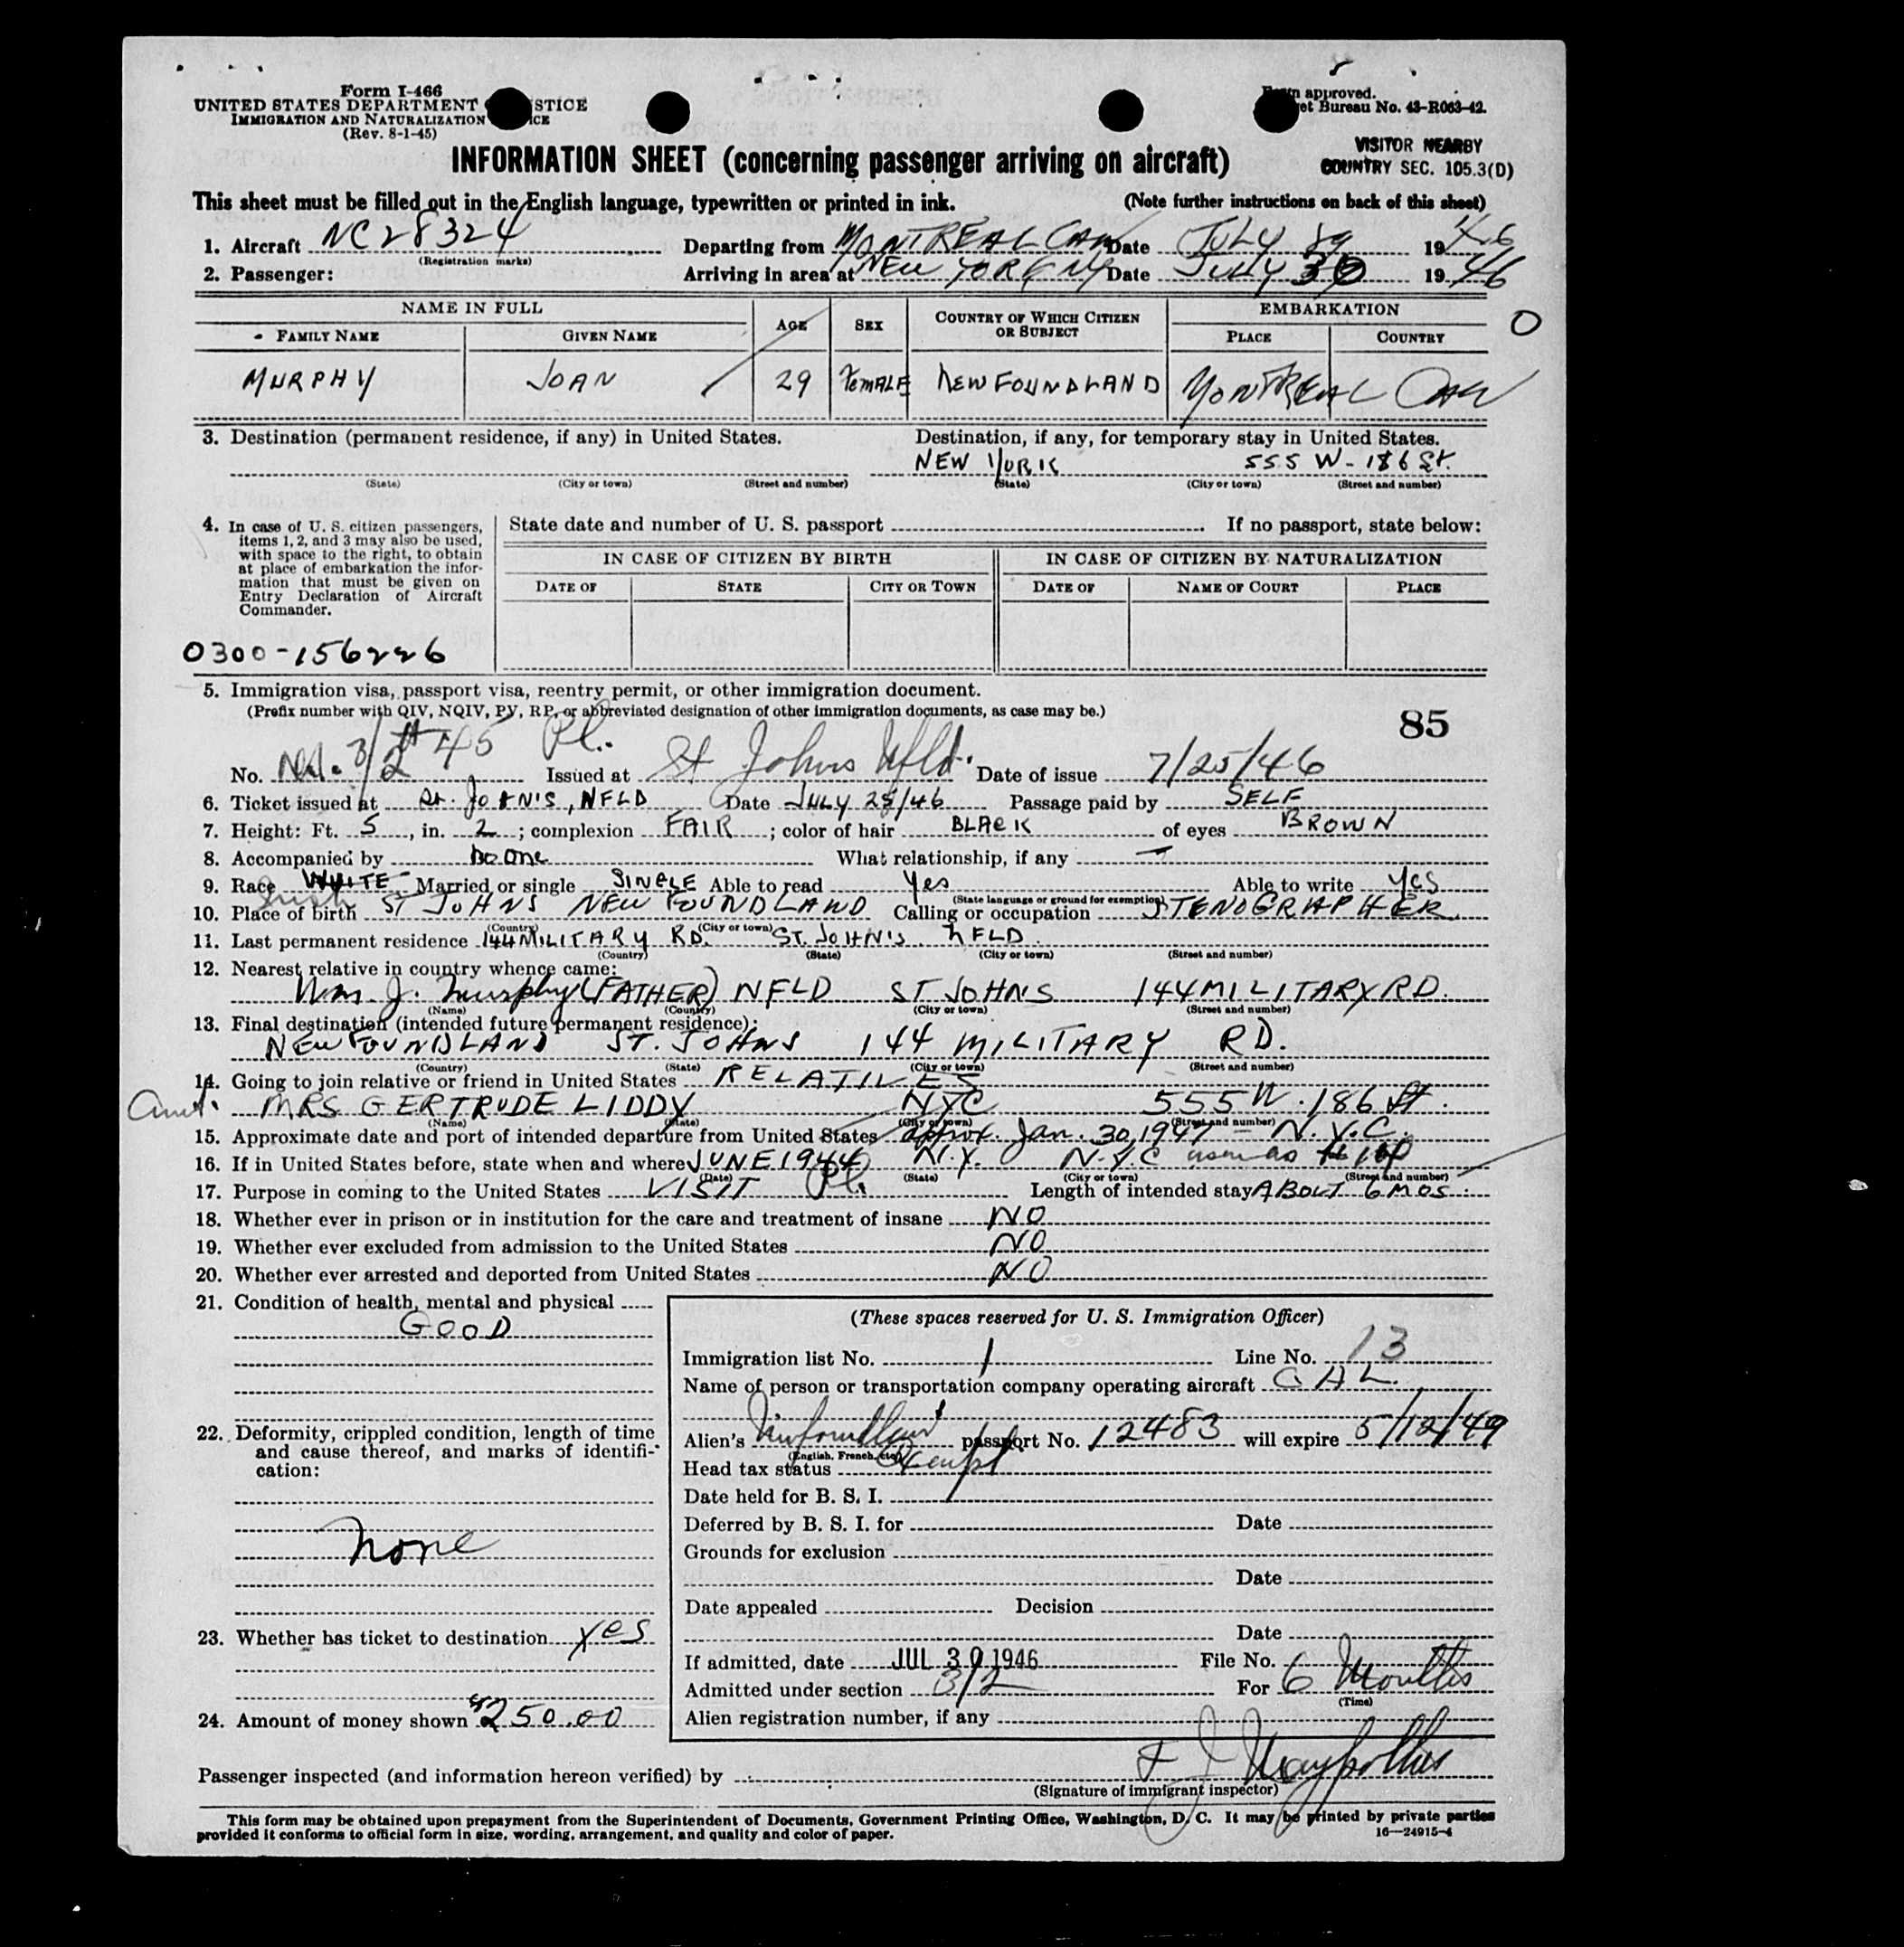 Form I-466
UNITED STATES DEPARTMENT STICE
IMMIGRATION AND NATURALIZATION ICE
(Rev. 8-1-45)
approved.
et Bureau No. 43-R063-42.
VISITOR NEARBY
COUNTRY SEC. 105.3(D)
INFORMATION SHEET (concerning passenger arriving on aircraft)
This sheet must be filled out in the English language, typewritten or printed in ink. (Note further instructions on back of this sheet)
1. Aircraft NC28324 Departing from MONTREAL CAN Date JULY 1946
(Registration marks)
2. Passenger: Arriving in area at NEW YORK NY Date JULY 30 1946
NAME IN FULL AGE SEX COUNTRY OF WHICH CITIZEN OR SUBJECT EMBARKATION
FAMILY NAME GIVEN NAME PLACE COUNTRY
O
MURPHY JOAN 29 FEMALE NEWFOUNDLAND MONTREAL CAN
3. Destination (permanent residence, if any) in United States. Destination, if any, for temporary stay in United States.
NEW YORK 555 W-186 St.
(State) (City or town) (Street and number) (State) (City or town) (Street and number)
4. In case of U. S. citizen passengers, items 1, 2, and 3 may also be used, with space to the right, to obtain at place of embarkation the information that must be given on Entry Declaration of Aircraft Commander.
State date and number of U. S. passport If no passport, state below:
IN CASE OF CITIZEN BY BIRTH IN CASE OF CITIZEN BY NATURALIZATION
DATE OF STATE CITY OR TOWN DATE OF NAME OF COURT PLACE
0300-156226
5. Immigration visa, passport visa, reentry permit, or other immigration document.
(Prefix number with QIV, NQIV, PV, RP, or abbreviated designation of other immigration documents, as case may be.)
85
No. 3/2 45 Issued at St Johns Nfld. Date of issue 7/25/46
6. Ticket issued at St. JOHN'S, NFLD Date JULY 28/46 Passage paid by SELF
7. Height: Ft. 5, in. 2; complexion FAIR; color of hair BLACK of eyes BROWN
8. Accompanied by no one What relationship, if any —
9. Race WHITE Irish Married or single SINGLE Able to read Yes Able to write Yes
(State language or ground for exemption)
10. Place of birth ST JOHNS NEWFOUNDLAND Calling or occupation STENOGRAPHER
(Country) (City or town)
11. Last permanent residence 144 MILITARY RD. ST. JOHN'S NFLD.
(Country) (State) (City or town) (Street and number)
12. Nearest relative in country whence came:
Wm. J. Murphy (FATHER) NFLD ST JOHNS 144 MILITARY RD.
(Name) (Country) (City or town) (Street and number)
13. Final destination (intended future permanent residence):
NEWFOUNDLAND ST. JOHNS 144 MILITARY RD.
(Country) (State) (City or town) (Street and number)
14. Going to join relative or friend in United States RELATIVES
Aunt. MRS GERTRUDE LIDDY NYC 555 W. 186 St.
(Name) (State) (City or town) (Street and number)
15. Approximate date and port of intended departure from United States approx. Jan. 30, 1947 - N.Y.C.
16. If in United States before, state when and where JUNE 1944 N.Y. N.Y.C
(Date) (State) (City or town) (Street and number)
17. Purpose in coming to the United States VISIT Length of intended stay ABOUT 6 MOS.
18. Whether ever in prison or in institution for the care and treatment of insane NO
19. Whether ever excluded from admission to the United States NO
20. Whether ever arrested and deported from United States NO
21. Condition of health, mental and physical
GOOD
22. Deformity, crippled condition, length of time and cause thereof, and marks of identification:
None
23. Whether has ticket to destination Yes
24. Amount of money shown $250.00
(These spaces reserved for U. S. Immigration Officer)
Immigration list No. 1 Line No. 13
Name of person or transportation company operating aircraft CAL.
Alien's Newfoundland passport No. 12483 will expire 5/12/49
(English, French, etc.)
Head tax status Exempt
Date held for B. S. I.
Deferred by B. S. I. for Date
Grounds for exclusion
Date
Date appealed Decision
Date
If admitted, date JUL 30 1946 File No.
Admitted under section 3/2 For 6 Months
(Time)
Alien registration number, if any
Passenger inspected (and information hereon verified) by
(Signature of immigrant inspector)
This form may be obtained upon prepayment from the Superintendent of Documents, Government Printing Office, Washington, D. C. It may be printed by private parties
provided it conforms to official form in size, wording, arrangement, and quality and color of paper. 16—24915-4